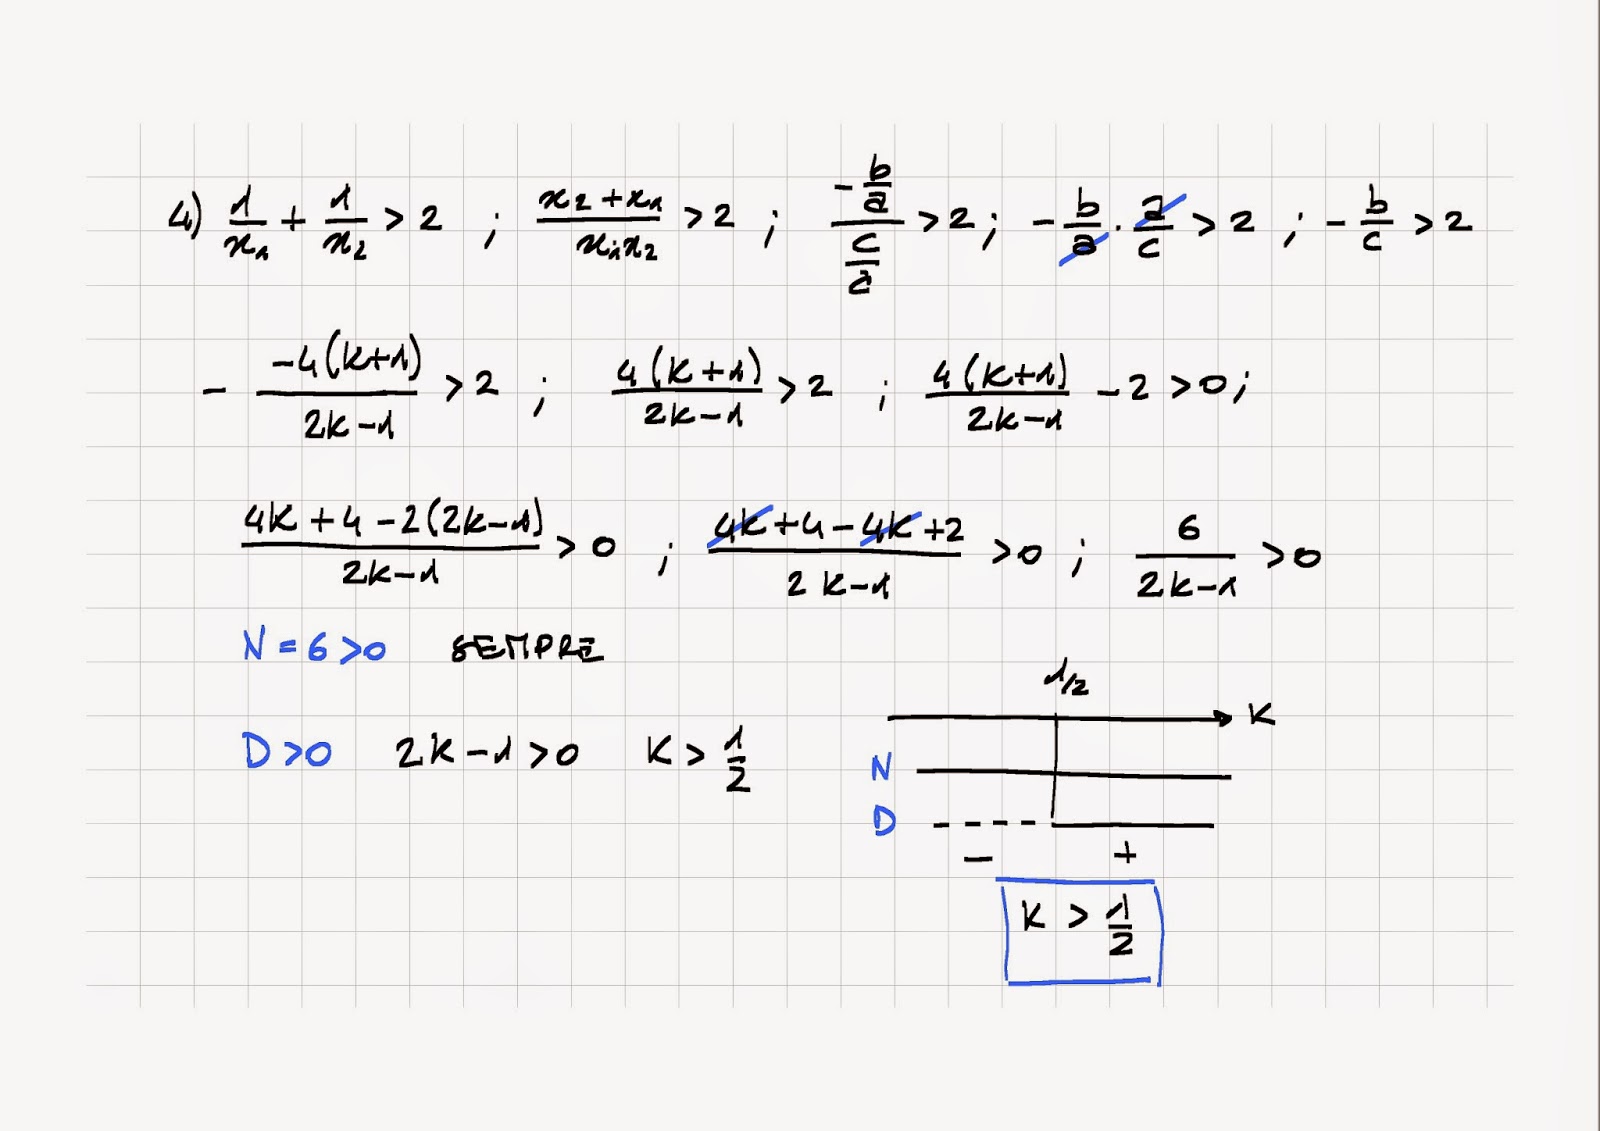 4) 1/x₁ + 1/x₂ > 2 ; (x₂ + x₁)/(x₁x₂) > 2 ; (-b/a)/(c/a) > 2 ; - b/a · a/c > 2 ; - b/c > 2
- (-4(k+1))/(2k-1) > 2 ; (4(k+1))/(2k-1) > 2 ; (4(k+1))/(2k-1) - 2 > 0 ;
(4k + 4 - 2(2k-1))/(2k-1) > 0 ; (4k + 4 - 4k + 2)/(2k-1) > 0 ; 6/(2k-1) > 0
N = 6 > 0 SEMPRE
1/2
K
D > 0 2k - 1 > 0 K > 1/2
N
D
- +
K > 1/2